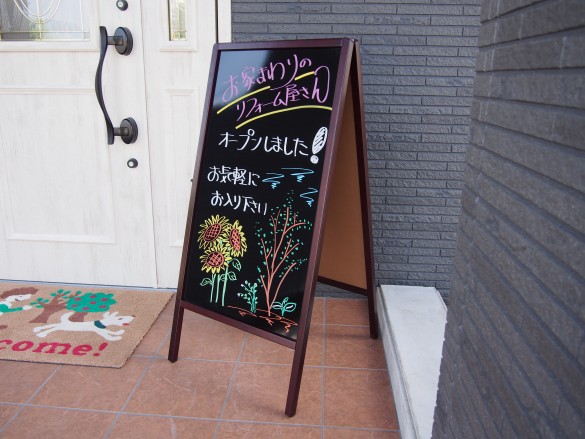 お家まわりの
リフォーム屋さん
オープンしました!
お気軽に
お入り下さい
come!